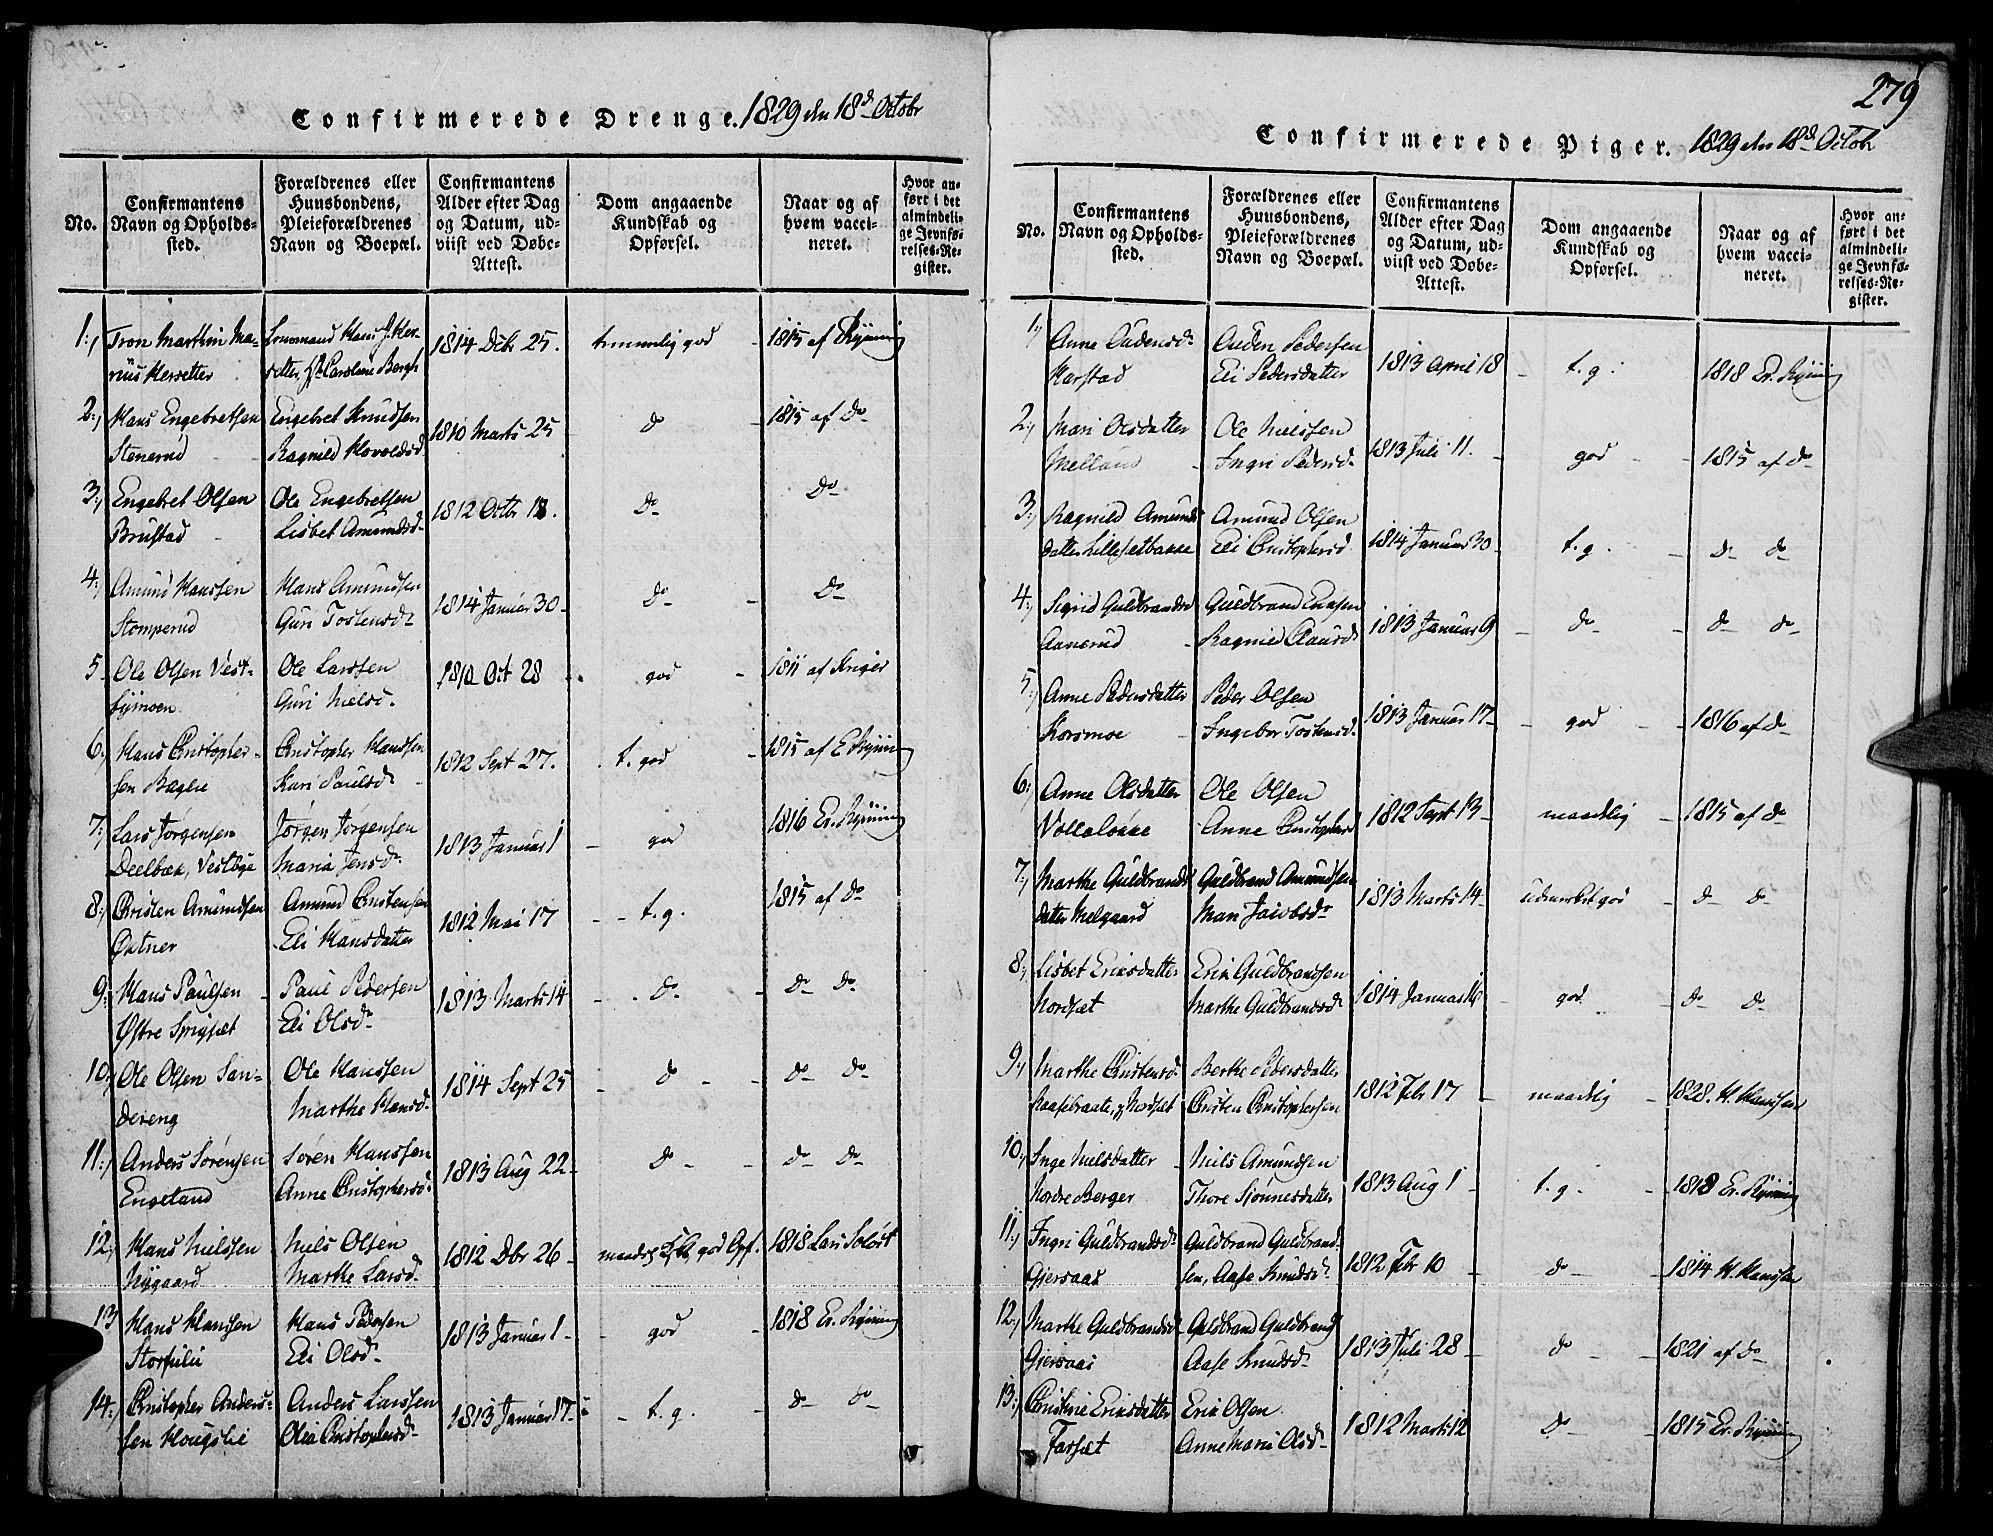 Confirmerede Drenge. 1829 den 18d Octobr
No.
Confirmantens Navn og Opholdssted.
Forældrenes eller Huusbondens, Pleieforældrenes Navn og Boepæl.
Confirmantens Alder efter Dag og Datum, udviist ved Døbe-Attest.
Dom angaaende Kundskab og Opførsel.
Naar og af hvem vaccineret.
Hvor anført i det almindelige Jevnførelses-Register.
1:, Tron Marthin Ma- Hans 1814 Dcbr 25. temmelig god - 1815 af Ryning
rius Caroline Bergh
2:, Hans Engebretsen Engebret Knudsen 1810 Marts 25 do - 1815 af do
Stenerud Ragnild
3:, Engebret Olsen Ole Engebretsen 1812 Octbr 18. do do
Brustad Lisbet Amundsd.
4:, Amund Hanssen Hans Amundsen 1814 Januar 30 do - do
Stomperud Guri Tostensd.
5. Ole Olsen Vest- Ole Larssen 1810 Oct 28 god - 1811 af Kriger
bymoen Guri Nielsd.
6:, Hans Christopher- Christopher Hanssen 1812 Sept 27. t. god - 1815 af E Ryning
sen Kari Paulsd.
7:, Lars Jørgensen Jørgen Jørgensen 1813 Januar 1 - god 1816 Er. Ryning
Deelbæk, Vestbye Maria Jensd.
8:, Christen Amundsen Amund Christensen 1812 Mai 17 - t. g. 1815 af do
Østner Eli Hansdatter
9:, Hans Paulsen Paul Pedersen 1813 Marts 14 - do - do do
Østre Eli Olsd.
10:, Ole Olsen San- Ole Hanssen 1814 Sept 25 - do - do do
dereng Marthe Hansd.
11:, Anders Sørensen Søren Hanssen 1813 Aug 22 - do - do do
Engeland Anne Christophersd.
12:, Hans Nielssen Niels Olsen 1812 Dbr 26 - god Opf. 1818 Lars Solørt
Nygaard Marthe Larsd.
13 Hans Hanssen Hans Pedersen 1813 Januar 1 - god - 1818 Er. Ryning
Eli Olsd.
14:, Christopher Anders- Anders Larssen 1813 Januar 17 - t. g. - do do
sen Hougslie Olia Christophersd.
279
Confirmerede Piger. 1829 den 18d Octobr
No.
Confirmantens Navn og Opholdssted.
Forældrenes eller Huusbondens, Pleieforældrenes Navn og Boepæl.
Confirmantens Alder efter Dag og Datum, udviist ved Døbe-Attest.
Dom angaaende Kundskab og Opførsel.
Naar og af hvem vaccineret.
Hvor anført i det almindelige Jevnførelses-Register.
1:, Anne Oudensd. Ouden Pedersen 1813 April 18 - t. g. 1818 Er. Ryning
Harstad Eli Pedersdatter
2:, Mari Olsdatter Ole Nielssen 1813 Juli 11. - god - 1815 af do
Melland Ingri Pedersd.
3:, Ragnild Amunds Amund Olsen 1814 Januar 30 - t. g. - do do
datter Lillesetbakke Eli Christophersd.
4:, Sigrid Guldbrandsd Guldbrand 1813 Januar 9 - do - do do
Aanerud Ragnild Clausd.
5:, Anne Pedersdatter Peder Olsen 1813 Januar 17 - god - 1816 af do
Korsmoe Ingebor Tostensd.
6:, Anne Olsdatter Ole Olsen 1812 Sept 13 - maadelig - 1815 af do
Volleløkke Anne Christophersd
7:, Marthe Guldbrands Guldbrand Amundsen 1813 Marts 14 - udmerket god - do do
datter Melgaard Mari Jacobsd.
8:, Lisbet Eriksdatter Erik Guldbrandsen 1814 Januar 16 - god - do do
Nordset Marthe Guldbrandsd.
9:, Marthe Christensd. Berthe Pedersdatter 1812 Febr 17 maadelig - 1828. H. Hanssen
Nordset Christen Christophersen
10:, Inge Nielsdatter Niels Amundsen 1813 Aug 1 - t. g. - 1818 Er. Ryning
Nordre Berger Thore Sjonnesdatter
11:, Ingri Guldbrandsd. Guldbrand Guldbrand- 1812 Febr 10 - do - 1814 H. Hanssen
Gjersaas sen, Aase Knudsd.
12:, Marthe Guldbrandsd. Guldbrand Guldbrands 1813 Juli 28 - do - 1821 af do
Gjersaas Aase Knudsd.
13:, Christine Eriksdatter Erik Olsen 1812 Marts 12 do - 1815 Er. Ryning
Farset Anne Marie Olsd.